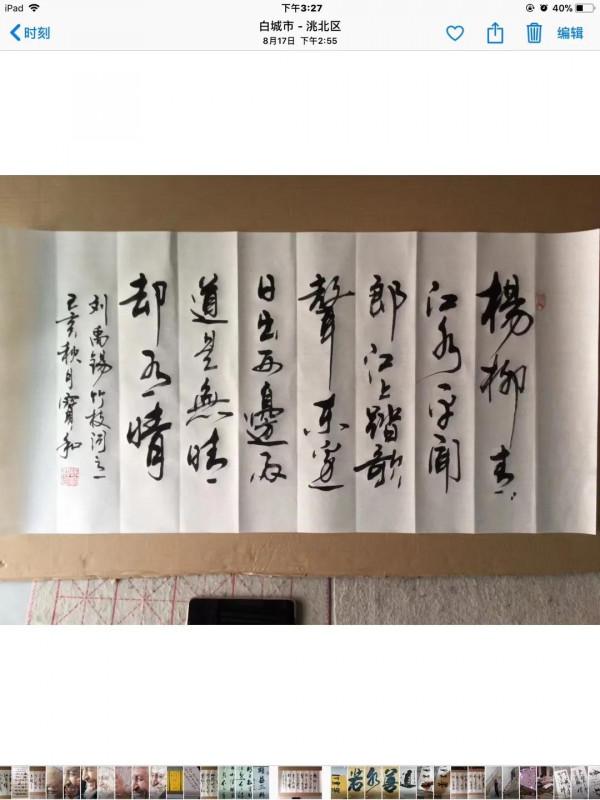 iPad
下午3:27
40%
时刻
白城市 - 洮北区
8月17日 下午2:55
编辑
楊柳青〻
江水平聞
郎江上踏歌
聲東邊
日出西邊雨
道是無晴
却有晴
刘禹锡竹枝词之一
己亥秋月寶和